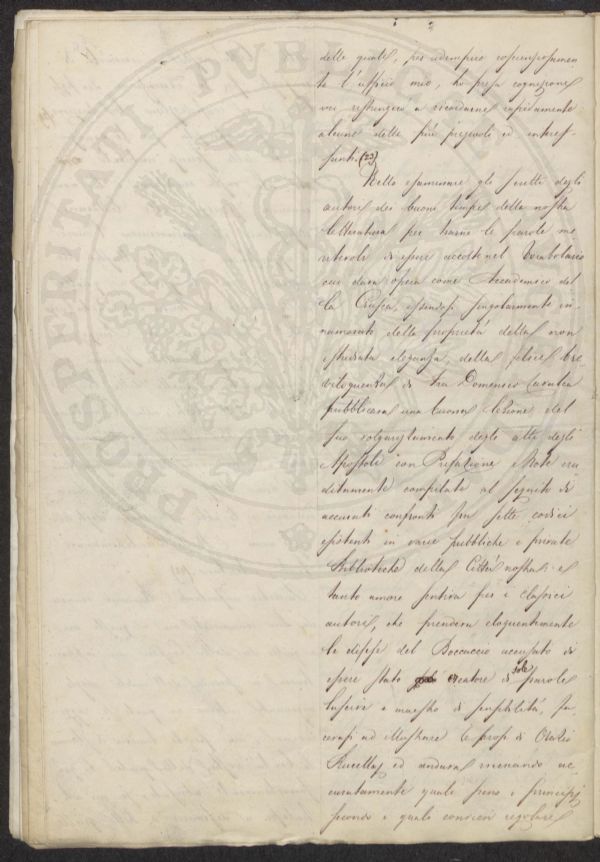 delle quali, per adempiere coscienziosamen
te l'ufficio mio, ho presa cognizione
mi restringerò a ricordarne rapidamente
alcune delle più pregevoli ed interes-
santi. (23)
Nello esaminare gli scritti degli
autori dei buoni tempi della nostra
letteratura per trarne le parole me
ritevoli di essere accolte nel Vocabolario
cui dava opera come Accademico del
la Crusca, essendosi singolarmente in-
namorato della proprietà della non
istudiata eleganza, della felice bre-
viloquenza di Fra Domenico Cavalca
pubblicava una buona lezione del
suo volgarizzamento degli atti degli
Apostoli con Prefazione e Note eru
ditamente compilate al seguito di
accurati confronti fra sette codici
esistenti in varie pubbliche e private
Biblioteche della Città nostra: e
tanto amore sentiva per i classici
autori, che prendeva eloquentemente
le difese del Boccaccio accusato di
essere stato creatore di sole parole
lascivie e maestro di semplilità, fa
cevasi ad illustrare le prose di Orazio
Rucellaj ed andava menando ac
curatamente quali sieno i principj
secondo i quali convien regolare